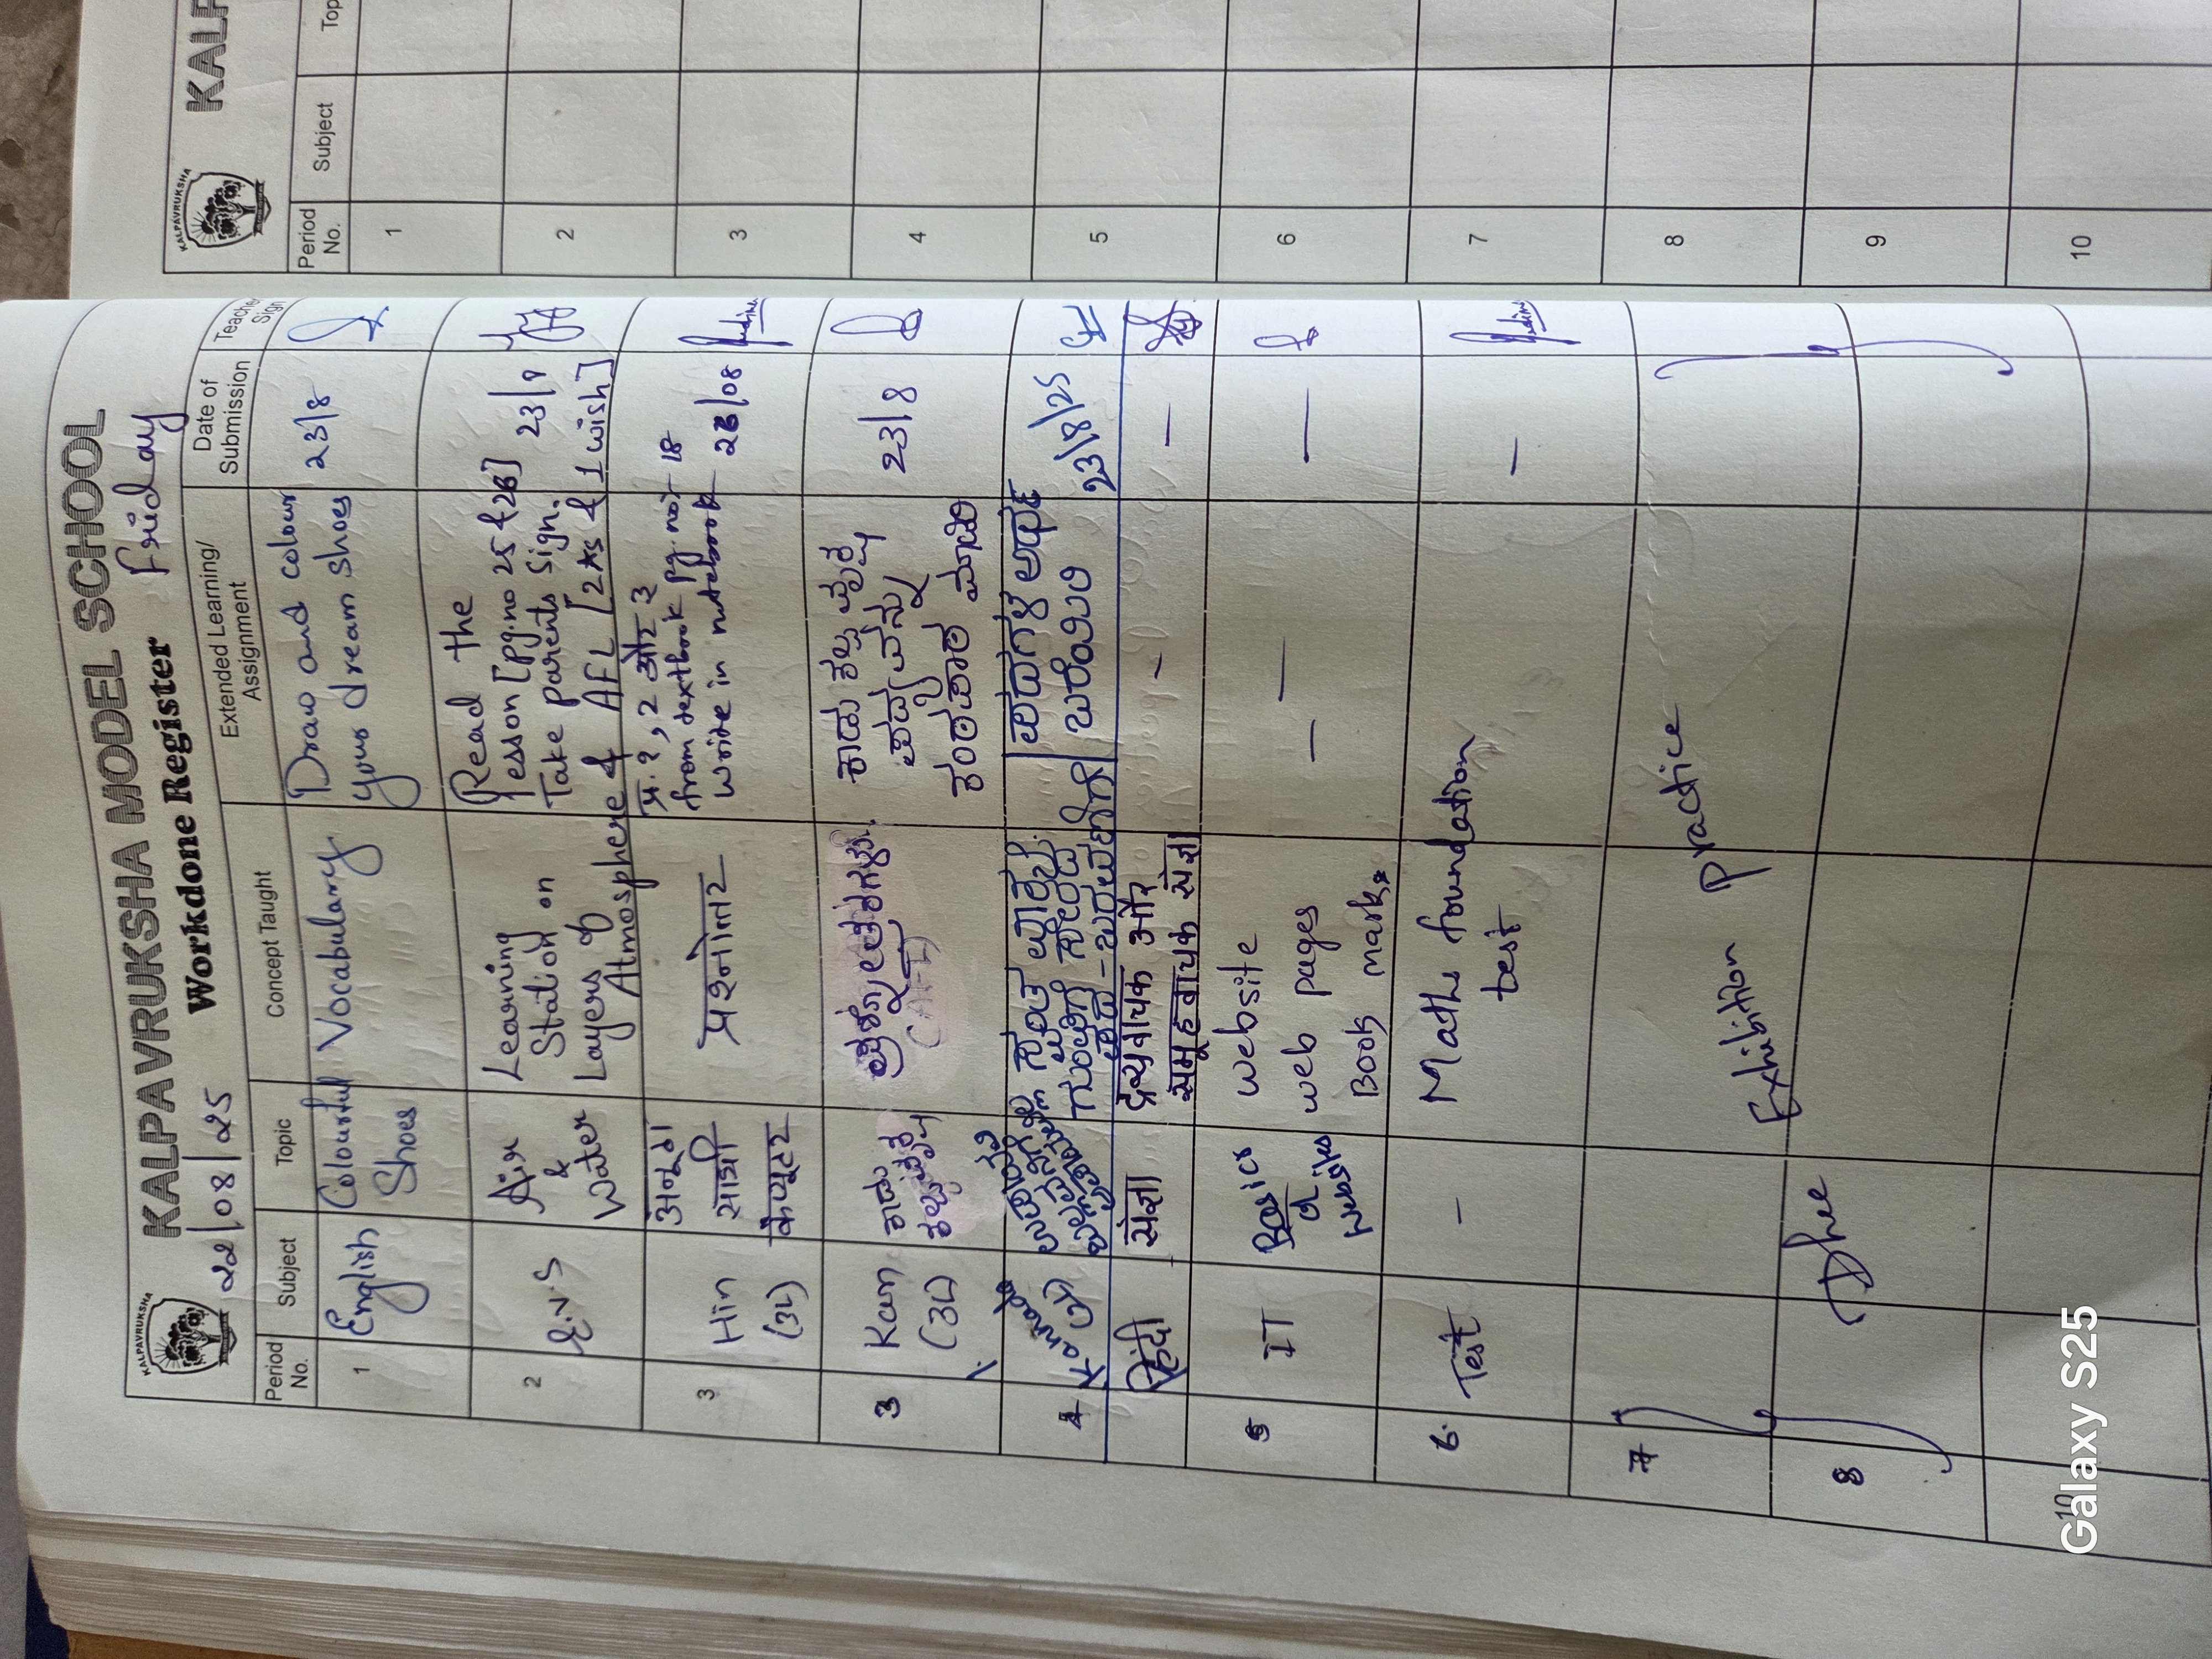 KALPAVRUKSHA
KALPAVRUKSHA MODEL SCHOOL
22/08/25 Workdone Register Friday
Period No. Subject Topic Concept Taught Extended Learning/ Assignment Date of Submission Teacher Sign
1 English Colourful Shoes Vocabulary Draw and colour your dream shoes 23/8
2 E.V.S Air & Water Learning Station on Layers of Atmosphere Read the lesson [pg.no 25 & 26] Take parents sign. & AFL [2*s & 1 wish] 23/8
3 Hin (3L) अनूठा साथी कंप्यूटर प्रश्नोत्तर प्र. १, २ और ३ from textbook pg.no- 18 write in notebook 23/08
3 Kan (3L) ಕಾಡು ಪ್ರಶ್ನೋತ್ತರಗಳು. 23/8
4 ಪದಗಳ ಅರ್ಥ ಬರೆಯಿರಿ 23/8/25
हिंदी संज्ञा द्रव्यवाचक और समूहवाचक संज्ञा - -
5 IT Basics of websites website web pages Book marks — — —
6. Test - Maths foundation test —
7 Exhibition Practice
8 Dhee
10
KALPAVRUKSHA
KALP
Period No. Subject Top
1
2
3
4
5
6
7
8
9
10
Galaxy S25